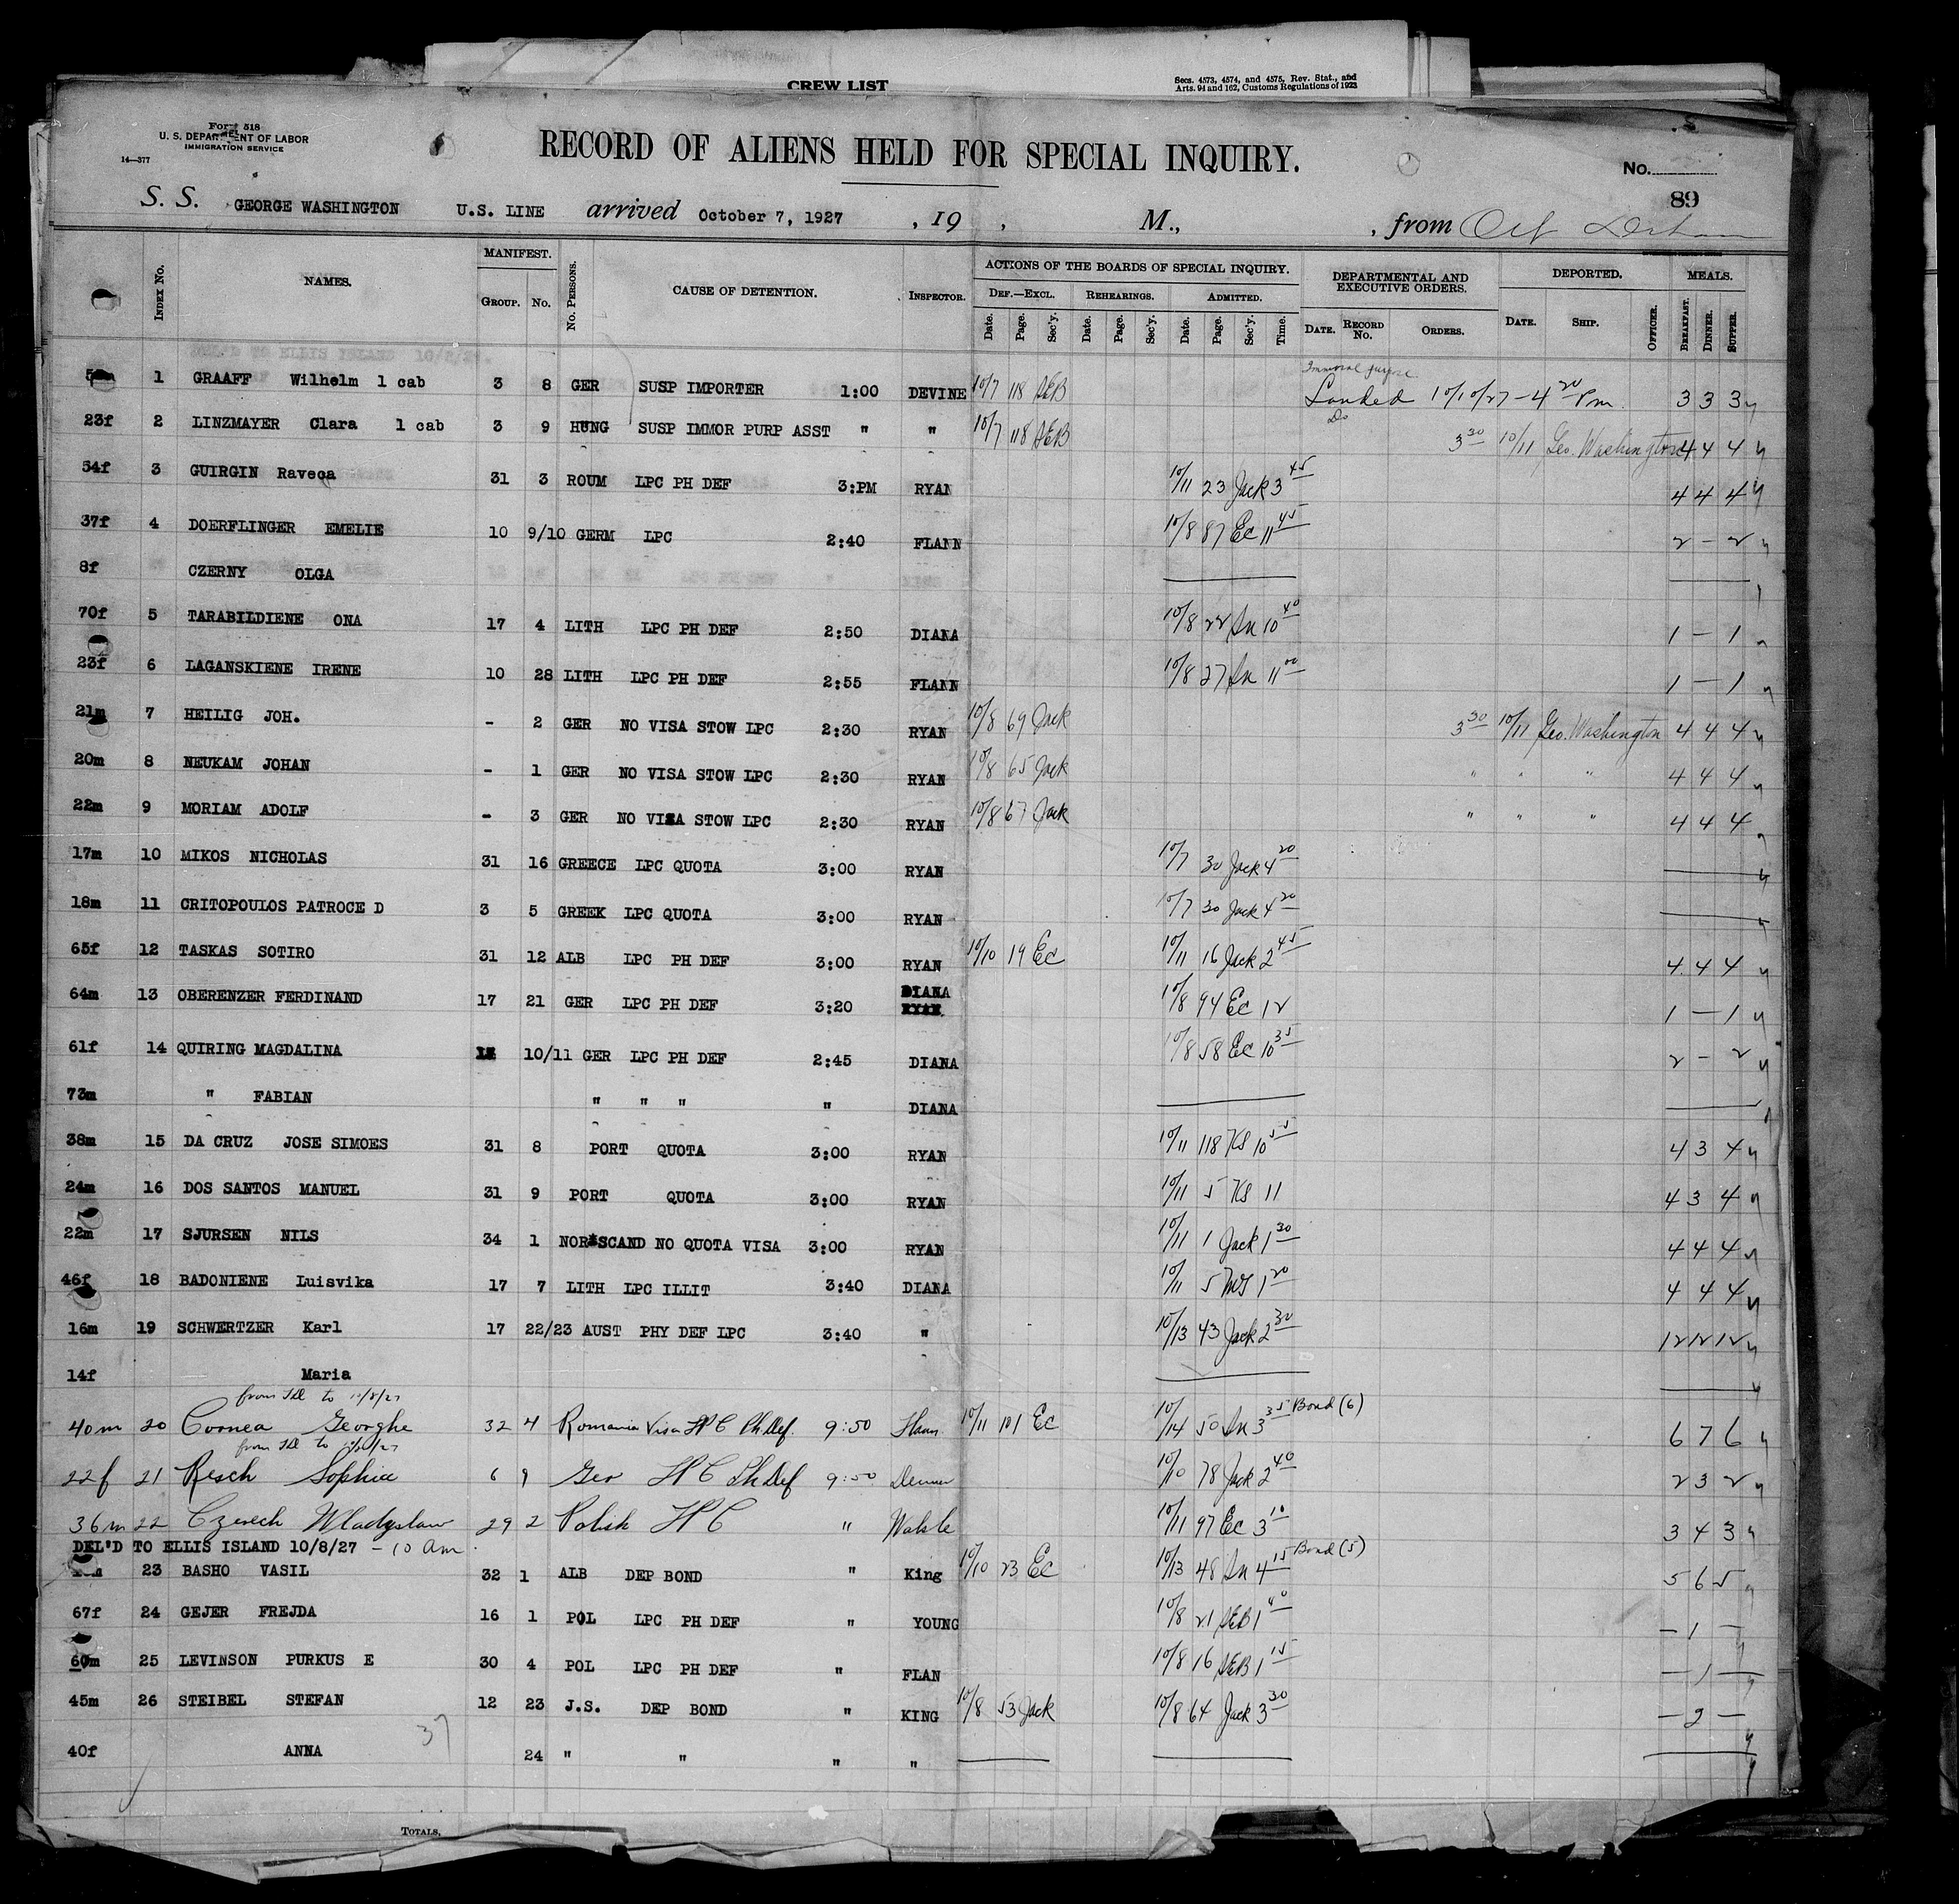 CREW LIST
Secs. 4573, 4574, and 4575, Rev. Stat., and
Arts. 94 and 162, Customs Regulations of 1923
Form 518
U. S. DEPARTMENT OF LABOR
IMMIGRATION SERVICE
14—377
RECORD OF ALIENS HELD FOR SPECIAL INQUIRY.
No.
89
S. S. GEORGE WASHINGTON U.S. LINE arrived October 7, 1927 , 19 , M., , from
Index No. NAMES. MANIFEST. GROUP. No. No. PERSONS. CAUSE OF DETENTION. INSPECTOR. ACTIONS OF THE BOARDS OF SPECIAL INQUIRY. DEF.—EXCL. Date. Page. Sec'y. REHEARINGS. Date. Page. Sec'y. ADMITTED. Date. Page. Sec'y. Time. DEPARTMENTAL AND EXECUTIVE ORDERS. DATE. RECORD No. ORDERS. DEPORTED. DATE. SHIP. OFFICER. MEALS. BREAKFAST. DINNER. SUPPER.
DEL'D TO ELLIS ISLAND
1 GRAAFF Wilhelm 1 cab 3 8 GER SUSP IMPORTER 1:00 DEVINE 10/7 118 AEB Immoral purpose Landed 10/10/27 - 4 20 Pm. 3 3 3
23f 2 LINZMAYER Clara 1 cab 3 9 HUNG SUSP IMMOR PURP ASST " " 10/7 118 AEB Do 3 30 10/11 Geo. Washington 4 4 4
54f 3 GUIRGIN Raveca 31 3 ROUM LPC PH DEF 3:PM RYAN 10/11 23 Jack 3 45 4 4 4
37f 4 DOERFLINGER EMELIE 10 9/10 GERM LPC 2:40 FLANN 10/8 87 Ec 11 45 2 - 2
8f CZERNY OLGA
70f 5 TARABILDIENE ONA 17 4 LITH LPC PH DEF 2:50 DIANA 10/8 22 Sn 10 40 1 - 1
23f 6 LAGANSKIENE IRENE 10 28 LITH LPC PH DEF 2:55 FLANN 10/8 27 Sn 11 00 1 - 1
21m 7 HEILIG JOH. - 2 GER NO VISA STOW LPC 2:30 RYAN 10/8 69 Jack 3 30 10/11 Geo. Washington 4 4 4
20m 8 NEUKAM JOHAN - 1 GER NO VISA STOW LPC 2:30 RYAN 10/8 65 Jack " " " 4 4 4
22m 9 MORIAM ADOLF - 3 GER NO VISA STOW LPC 2:30 RYAN 10/8 67 Jack " " " 4 4 4
17m 10 MIKOS NICHOLAS 31 16 GREECE LPC QUOTA 3:00 RYAN 10/7 30 Jack 4 20
18m 11 CRITOPOULOS PATROCE D 3 5 GREEK LPC QUOTA 3:00 RYAN 10/7 30 Jack 4 20
65f 12 TASKAS SOTIRO 31 12 ALB LPC PH DEF 3:00 RYAN 10/10 19 Ec 10/11 16 Jack 2 45 4 4 4
64m 13 OBERENZER FERDINAND 17 21 GER LPC PH DEF 3:20 DIANA RYAN 10/8 94 Ec 12 1 - 1
61f 14 QUIRING MAGDALINA 10/11 GER LPC PH DEF 2:45 DIANA 10/8 58 Ec 10 35 2 - 2
73m " FABIAN " " " " DIANA
38m 15 DA CRUZ JOSE SIMOES 31 8 PORT QUOTA 3:00 RYAN 10/11 118 KS 10 55 4 3 4
24m 16 DOS SANTOS MANUEL 31 9 PORT QUOTA 3:00 RYAN 10/11 5 KS 11 4 3 4
22m 17 SJURSEN NILS 34 1 NOR SCAND NO QUOTA VISA 3:00 RYAN 10/11 1 Jack 1 30 4 4 4
46f 18 BADONIENE Luisvika 17 7 LITH LPC ILLIT 3:40 DIANA 10/11 5 1 20 4 4 4
16m 19 SCHWERTZER Karl 17 22/23 AUST PHY DEF LPC 3:40 " 10/13 43 Jack 2 30 12 12 12
14f Maria
40m 20 Cornea Georghe 32 4 Romania Visa LPC Ph Def. 9:50 Flann 10/11 101 Ec 10/14 50 Sn 3 35 Bond (6) 6 7 6
22f 21 Resch Sophie 6 9 Ger LPC Ph Def 9:50 10/10 78 Jack 2 40 2 3 2
36m 22 Czerech Wladyslaw 29 2 Polish LPC " 10/11 97 Ec 3 10 3 4 3
DEL'D TO ELLIS ISLAND 10/8/27 - 10 am.
23 BASHO VASIL 32 1 ALB DEP BOND " King 10/10 23 Ec 10/13 48 Sn 4 15 Bond (5) 5 6 5
67f 24 GEJER FREJDA 16 1 POL LPC PH DEF " YOUNG 10/8 21 AEB 1 40 - 1 -
60m 25 LEVINSON PURKUS E 30 4 POL LPC PH DEF " FLAN 10/8 16 AEB 1 15 - 1 -
45m 26 STEIBEL STEFAN 12 23 J.S. DEP BOND " KING 10/8 53 Jack 10/8 64 Jack 3 30 - 2 -
37
40f ANNA 24 " " " "
TOTALS,